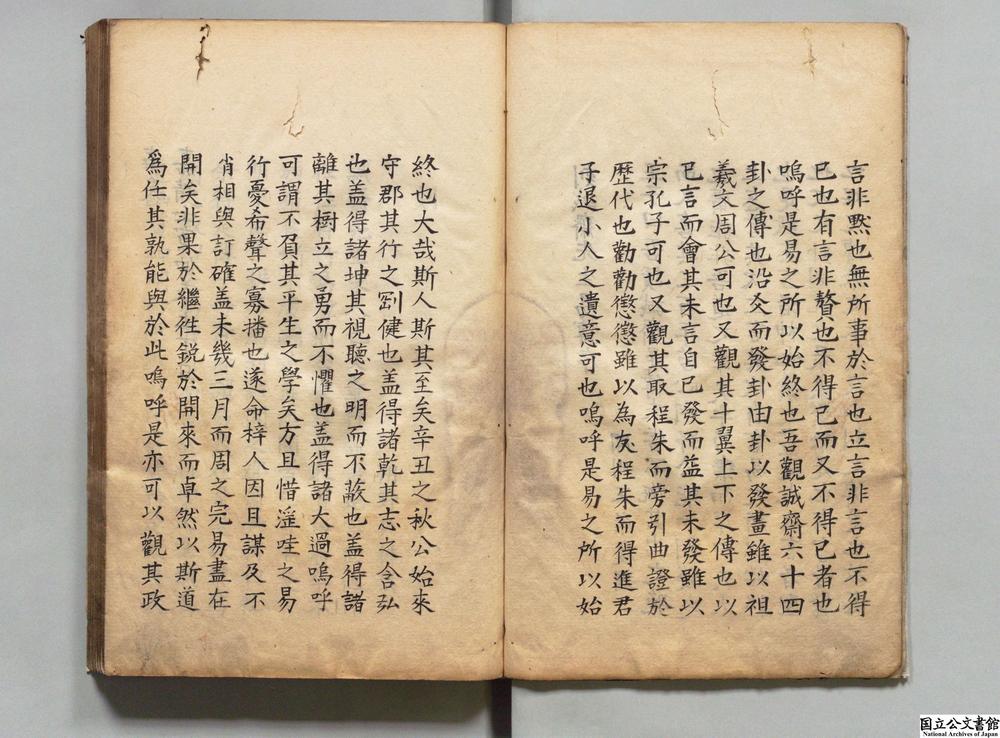 言非黙也無所事於言也立言非言也不得
已也有言非贅也不得已而又不得已者也
嗚呼是易之所以始終也吾觀誠齋六十四
卦之傳也沿爻而發卦由卦以發畫雖以祖
羲文周公可也又觀其十翼上下之傳也以
已言而會其未言自已發而益其未發雖以
宗孔子可也又觀其取程朱而旁引曲證於
歷代也勸勸懲懲雖以為友程朱而得進君
子退小人之遺意可也嗚呼是易之所以始
終也大哉斯人斯其至矣辛丑之秋公始來
守郡其行之剛健也盖得諸乾其志之含弘
也盖得諸坤其視聽之明而不蔽也盖得諸
離其樹立之勇而不懼也盖得諸大過嗚呼
可謂不負其平生之學矣方且惜淫哇之易
行憂希聲之寡播也遂命梓人因且謀及不
肖相與訂確盖未幾三月而周之完易盡在
開矣非果於繼徃銳於開來而卓然以斯道
爲任其孰能與於此嗚呼是亦可以觀其政
国立公文書館
National Archives of Japan